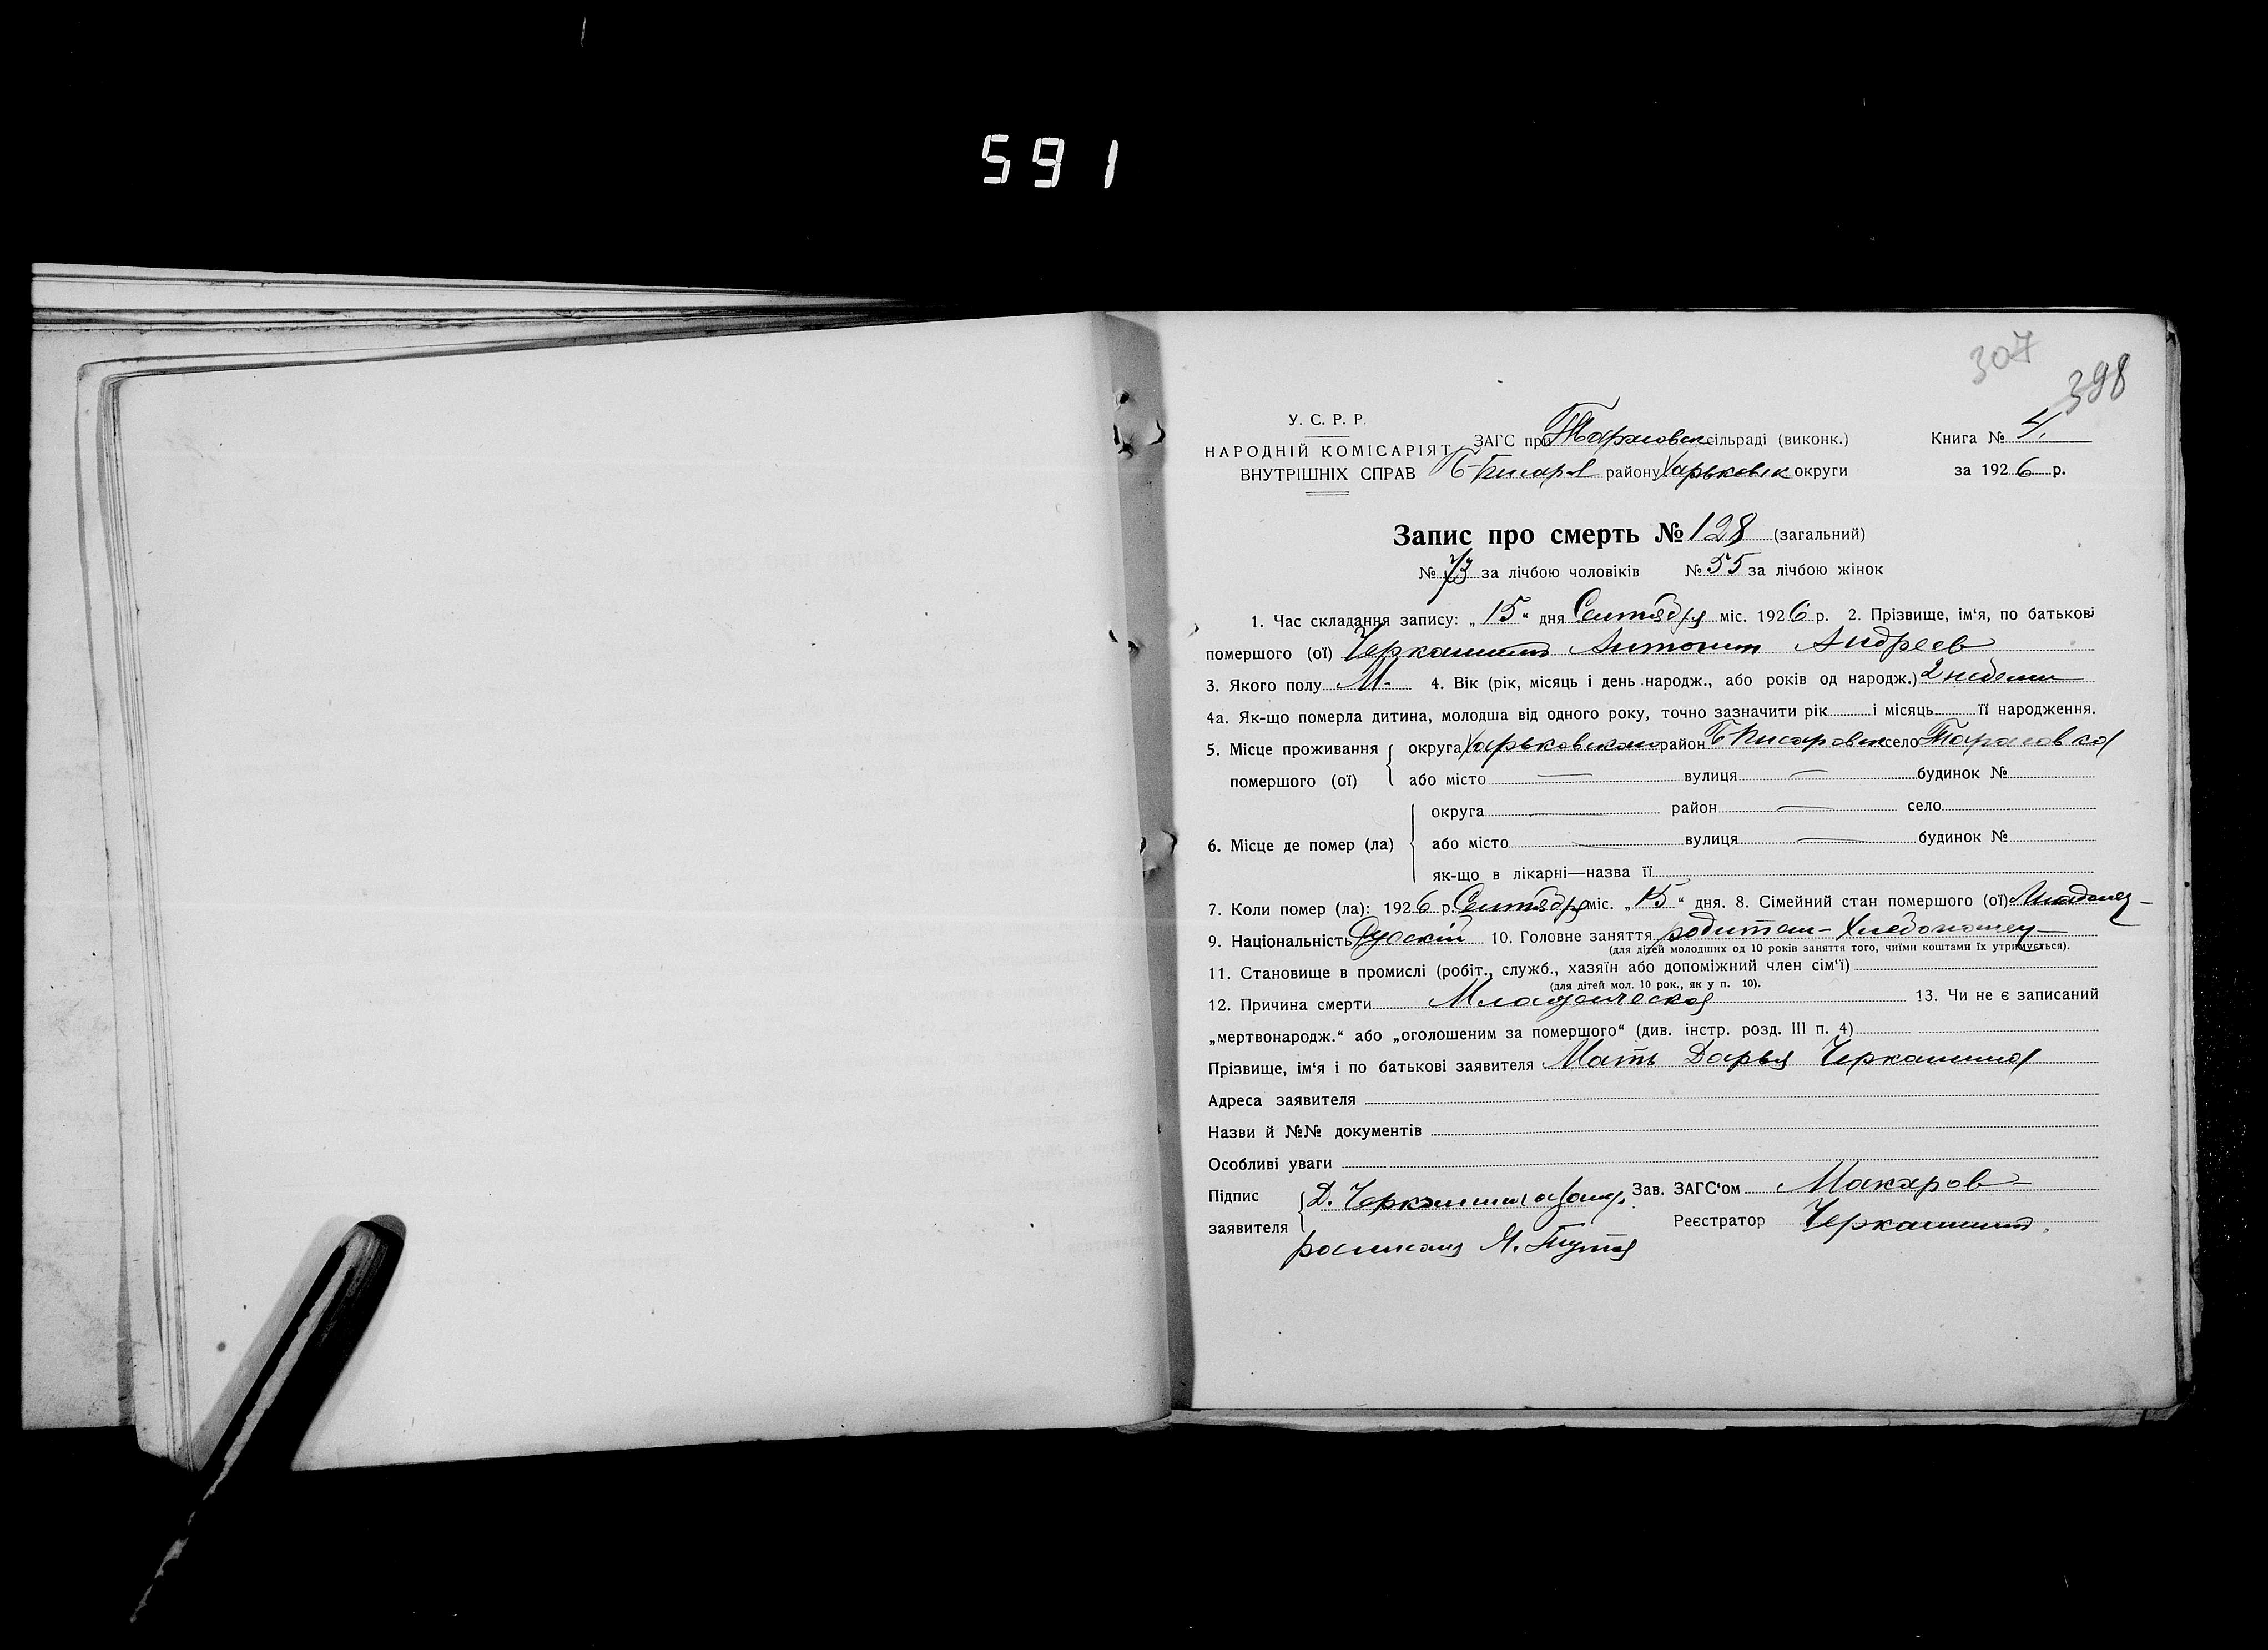 591
307
398
У. С. Р. Р.
НАРОДНІЙ КОМІСАРІЯТ
ВНУТРІШНІХ СПРАВ
ЗАГС при Тарасовск сільраді (виконк.)
Б-Писарв району Харьковск округи
Книга № 4.
за 1926 р.
Запис про смерть № 128 (загальний)
№ 73 за лічбою чоловіків № 55 за лічбою жінок
1. Час складання запису: „15“ дня Сентября міс. 1926 р. 2. Прізвище, ім‘я, по батькові
помершого (ої) Черкашин Антонин Андреев
3. Якого полу М. 4. Вік (рік, місяць і день народж., або років од народж.) 2 недели
4а. Як-що померла дитина, молодша від одного року, точно зазначити рік і місяць її народження.
5. Місце проживання помершого (ої) округа Харьковского район Б Писаровск село Тарасовка
або місто — вулиця — будинок №
6. Місце де помер (ла) округа — район — село
або місто — вулиця — будинок №
як-що в лікарні—назва її
7. Коли помер (ла): 1926 р. Сентября міс. „15“ дня. 8. Сімейний стан помершого (ої) Младенец
9. Національність Русскій 10. Головне заняття родители - Хлебопашец
(для дітей молодших од 10 років заняття того, чиїми коштами їх утримується).
11. Становище в промислі (робіт., служб., хазяїн або допоміжний член сім‘ї)
(для дітей мол. 10 рок., як у п. 10).
12. Причина смерти Младенческая 13. Чи не є записаний
„мертвонародж.“ або „оголошеним за помершого“ (див. інстр. розд. III п. 4)
Прізвище, ім‘я і по батькові заявителя Мать Дарья Черкашина
Адреса заявителя
Назви й №№ документів
Особливі уваги
Підпис заявителя Д. Черкашина
Зав. ЗАГС‘ом Макаров
Реєстратор Черкашин.